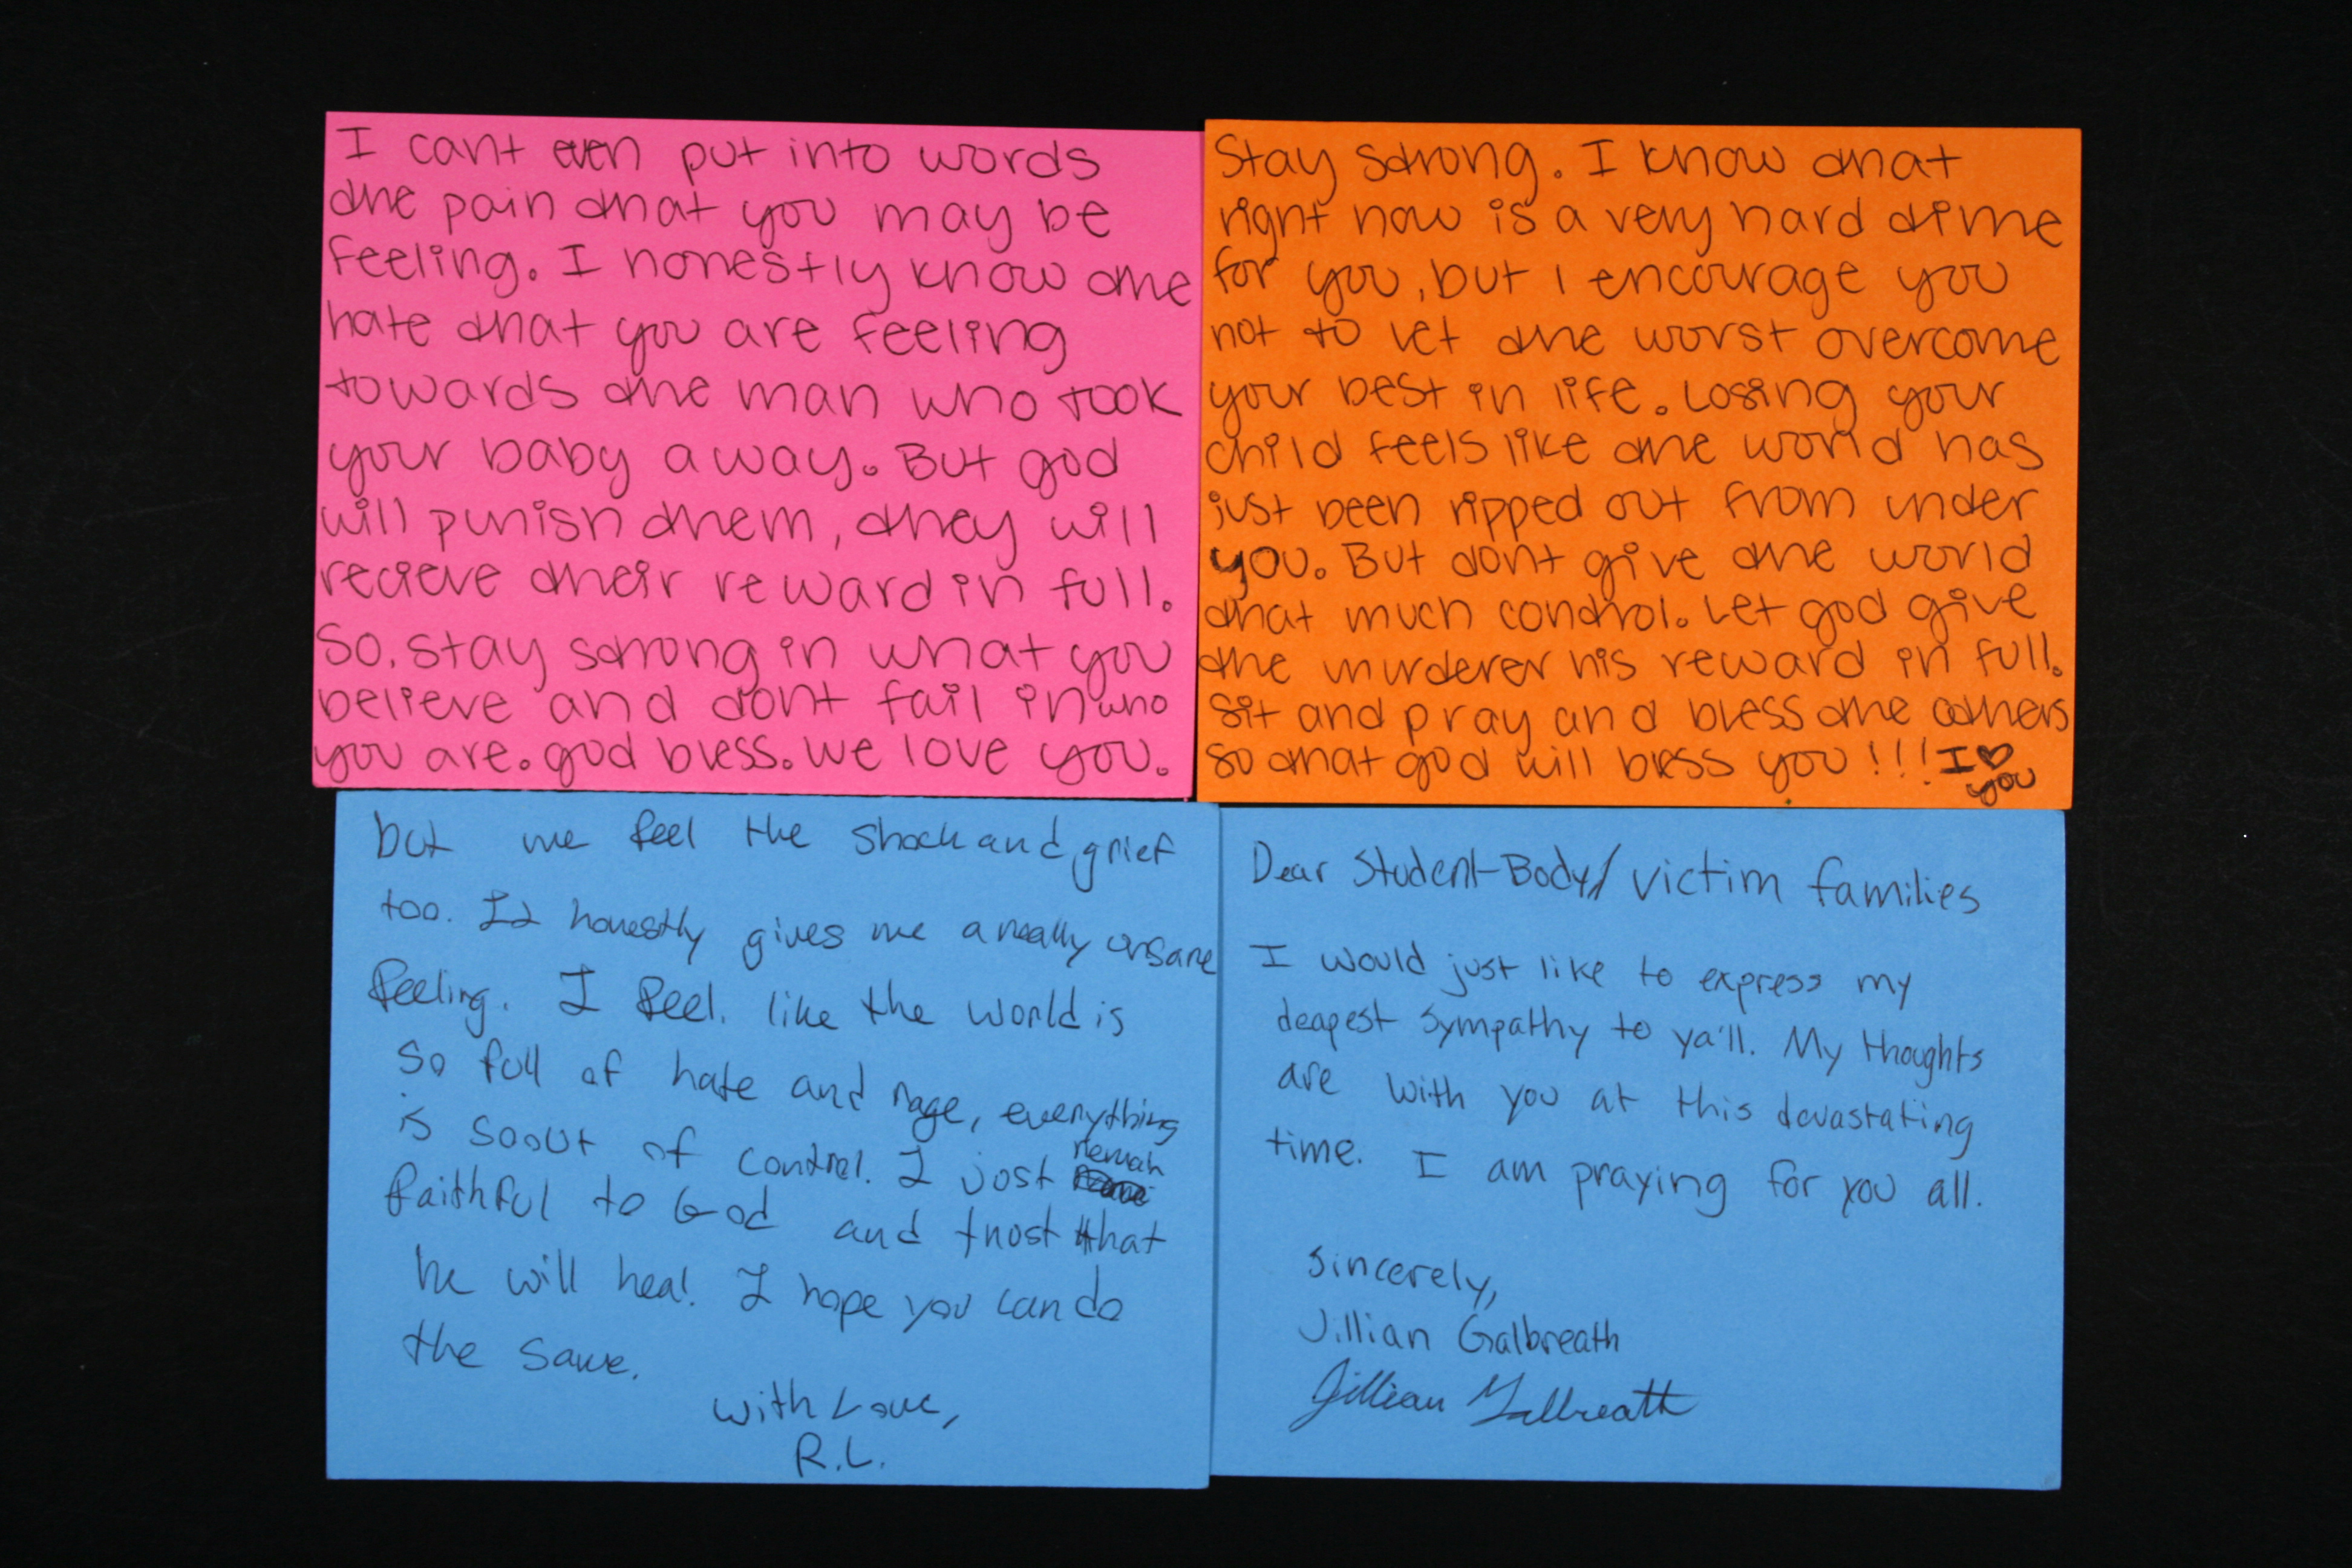 I cant even put into words
the pain that you may be
feeling. I honestly know the
hate that you are feeling
towards the man who took
your baby away. But god
will punish them, they will
recieve their reward in full.
So, stay strong in what you
believe and dont fail in who
you are. god bless. We love you.
Stay strong. I know that
right now is a very hard time
for you, but I encourage you
not to let the worst overcome
your best in life. Losing your
child feels like the world has
just been ripped out from under
you. But dont give the world
that much control. Let god give
the murderer his reward in full.
Sit and pray and bless the others
so that god will bless you!!! I ♡
you
but we feel the shock and grief
too. It honestly gives me a really unsane
feeling. I feel. like the world is
so full of hate and rage, everything
is so out of control. I just remain
faithful to God and trust that
he will heal. I hope you can do
the same.
With Love,
R.L.
Dear Student-Body/ victim families
I would just like to express my
deapest sympathy to ya'll. My thoughts
are with you at this devastating
time. I am praying for you all.
Sincerely,
Jillian Galbreath
Jillian Galbreath